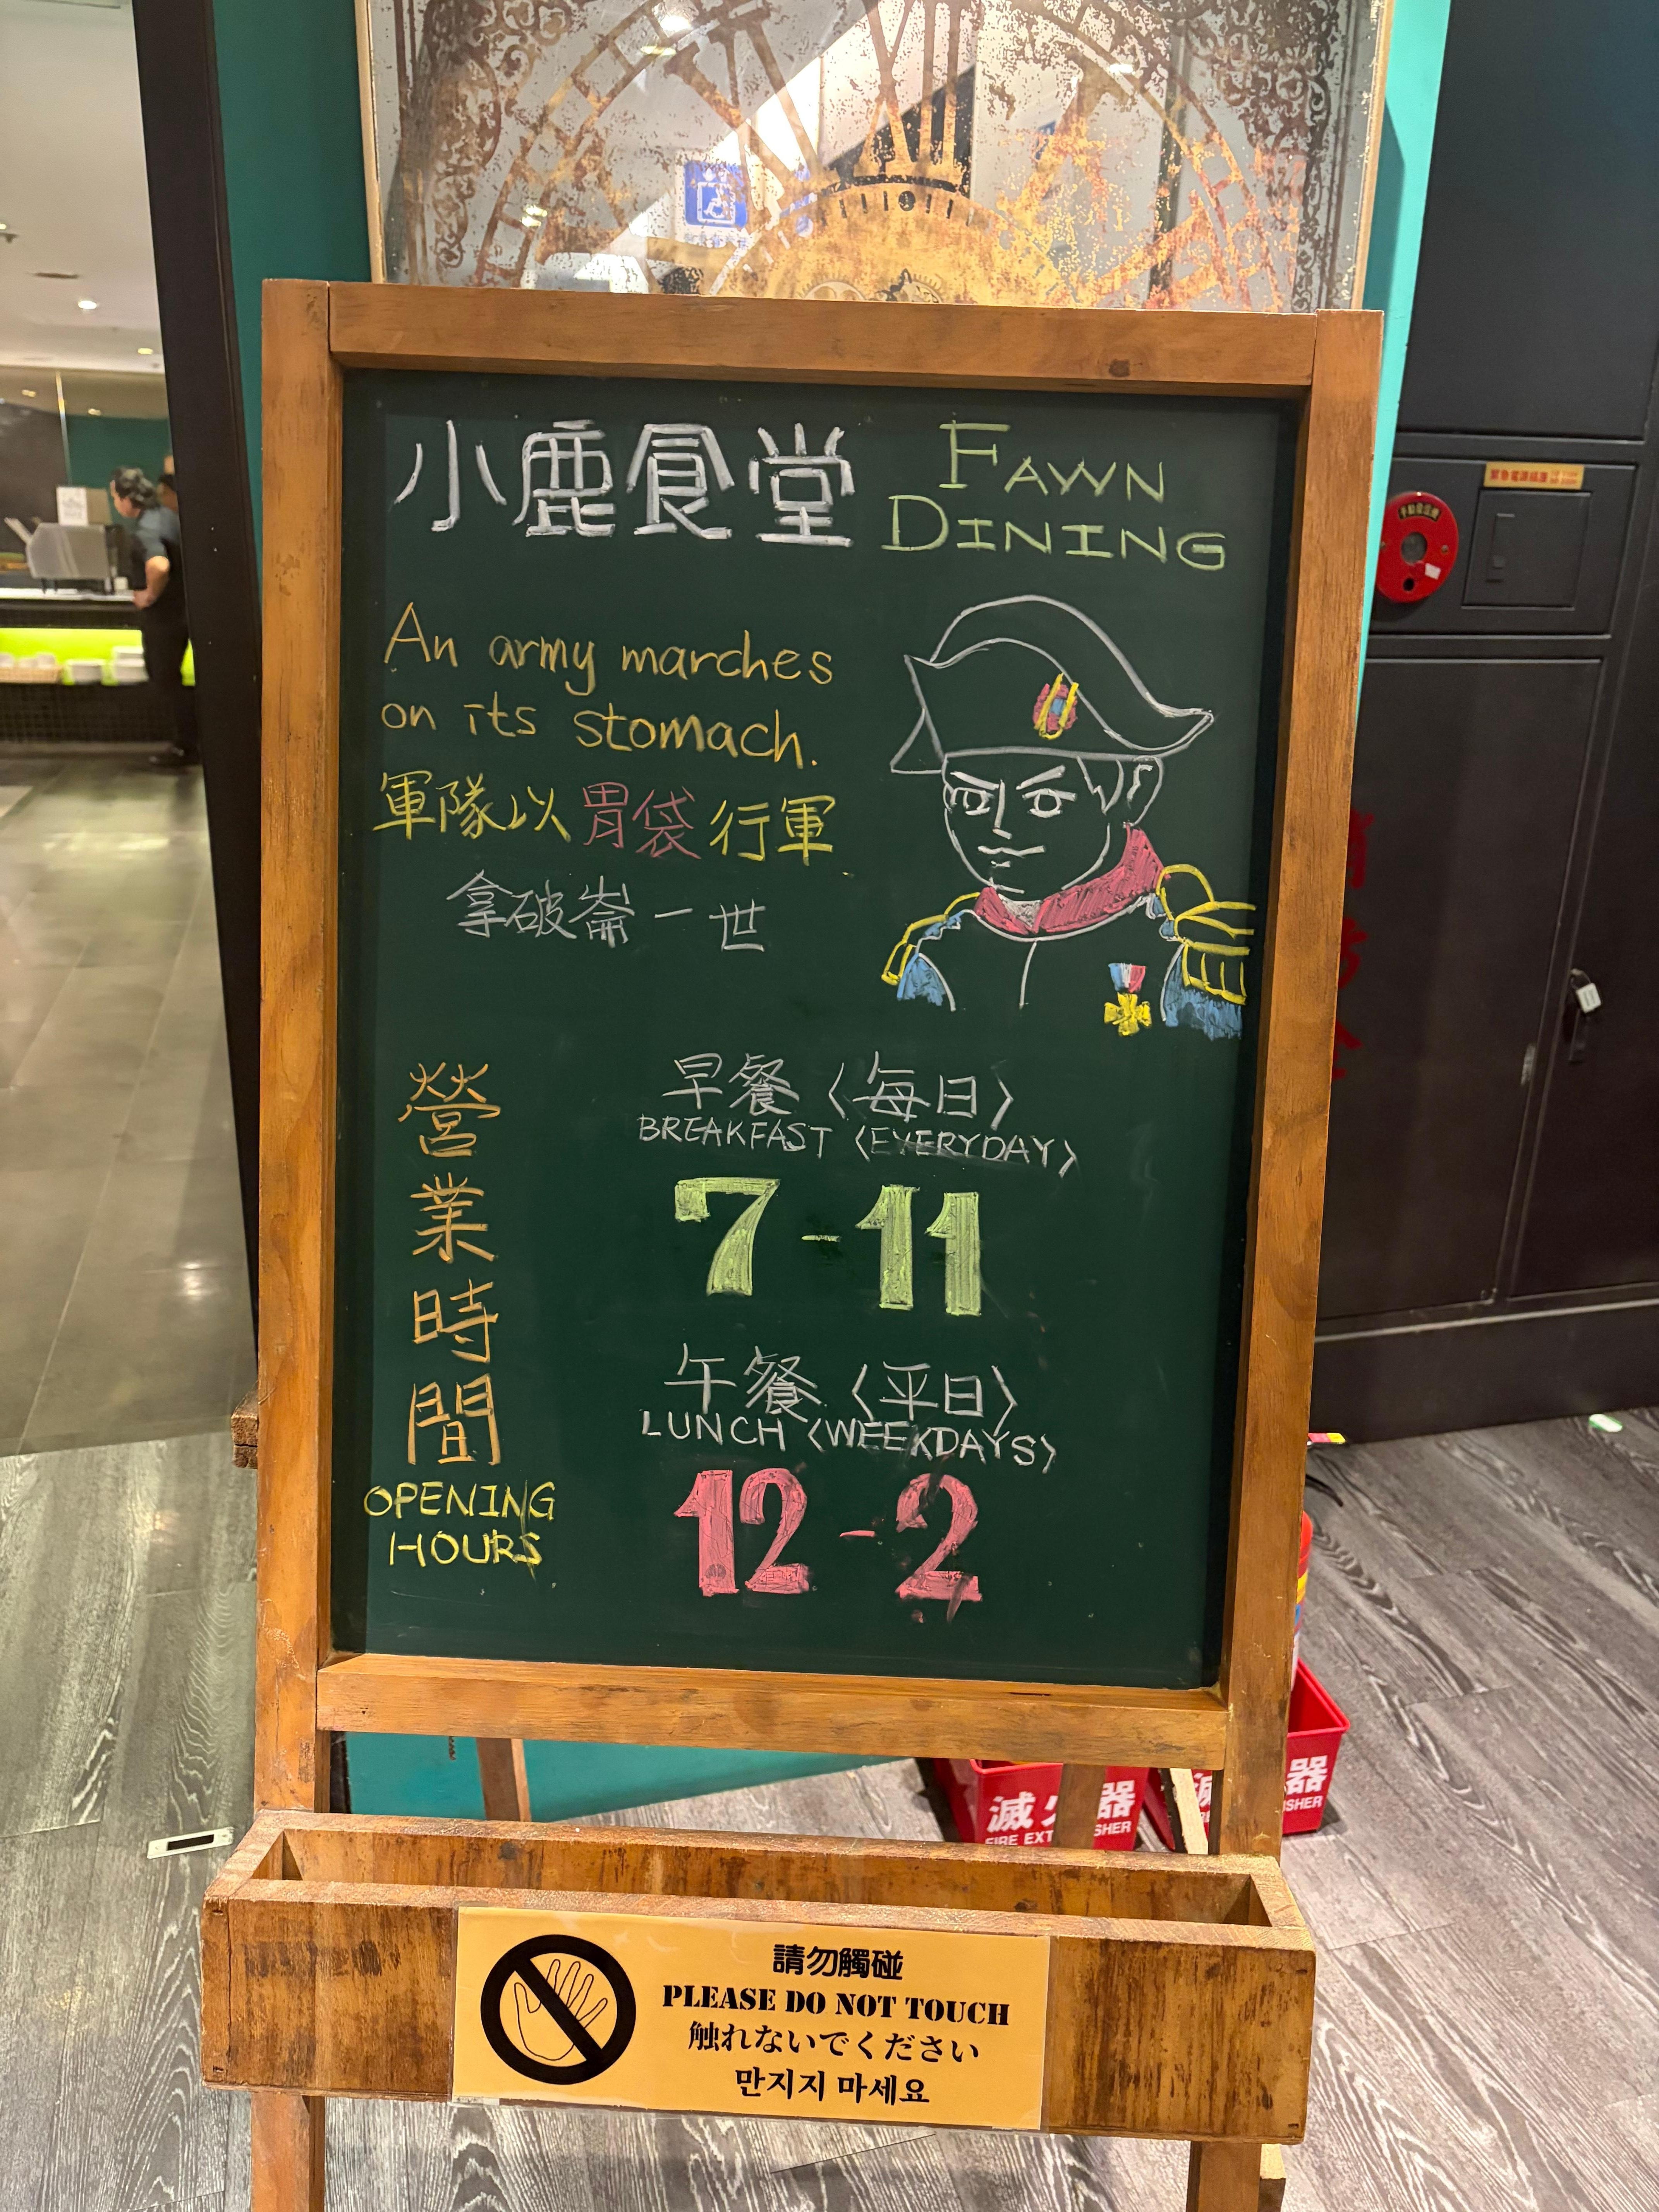 小鹿食堂 FAWN
DINING
An army marches
on its stomach.
軍隊以胃袋行軍
拿破崙一世
營業時間
OPENING
HOURS
早餐〈每日〉
BREAKFAST〈EVERYDAY〉
7-11
午餐〈平日〉
LUNCH〈WEEKDAYS〉
12-2
請勿觸碰
PLEASE DO NOT TOUCH
触れないでください
만지지 마세요
滅火器
FIRE EXT SHER
器
SHER